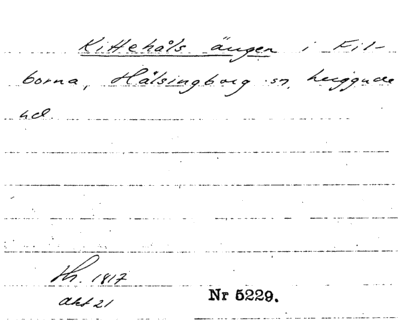 Kittehåls ängen i Fil-
borna, Hälsingborg sn, Luggude
hd
Lh. 1817
akt 21
Nr 5229.